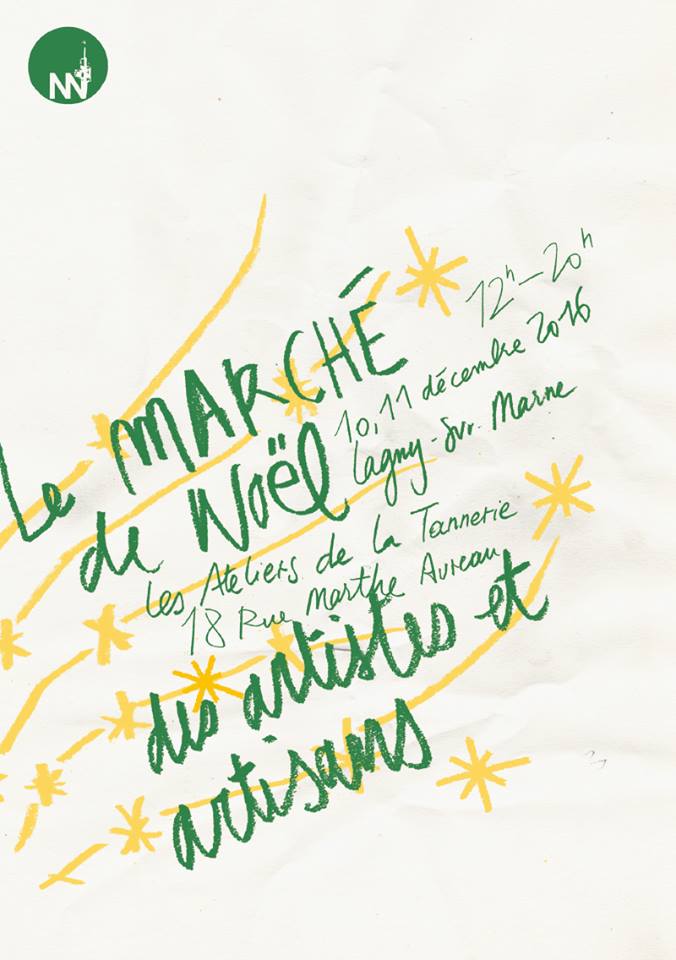 NN
Le MARCHÉ
de Noël
12h-20h
10, 11 décembre 2016
Lagny-sur-Marne
Les Ateliers de la Tannerie
18 Rue Marthe Aureau
des artistes et
artisans